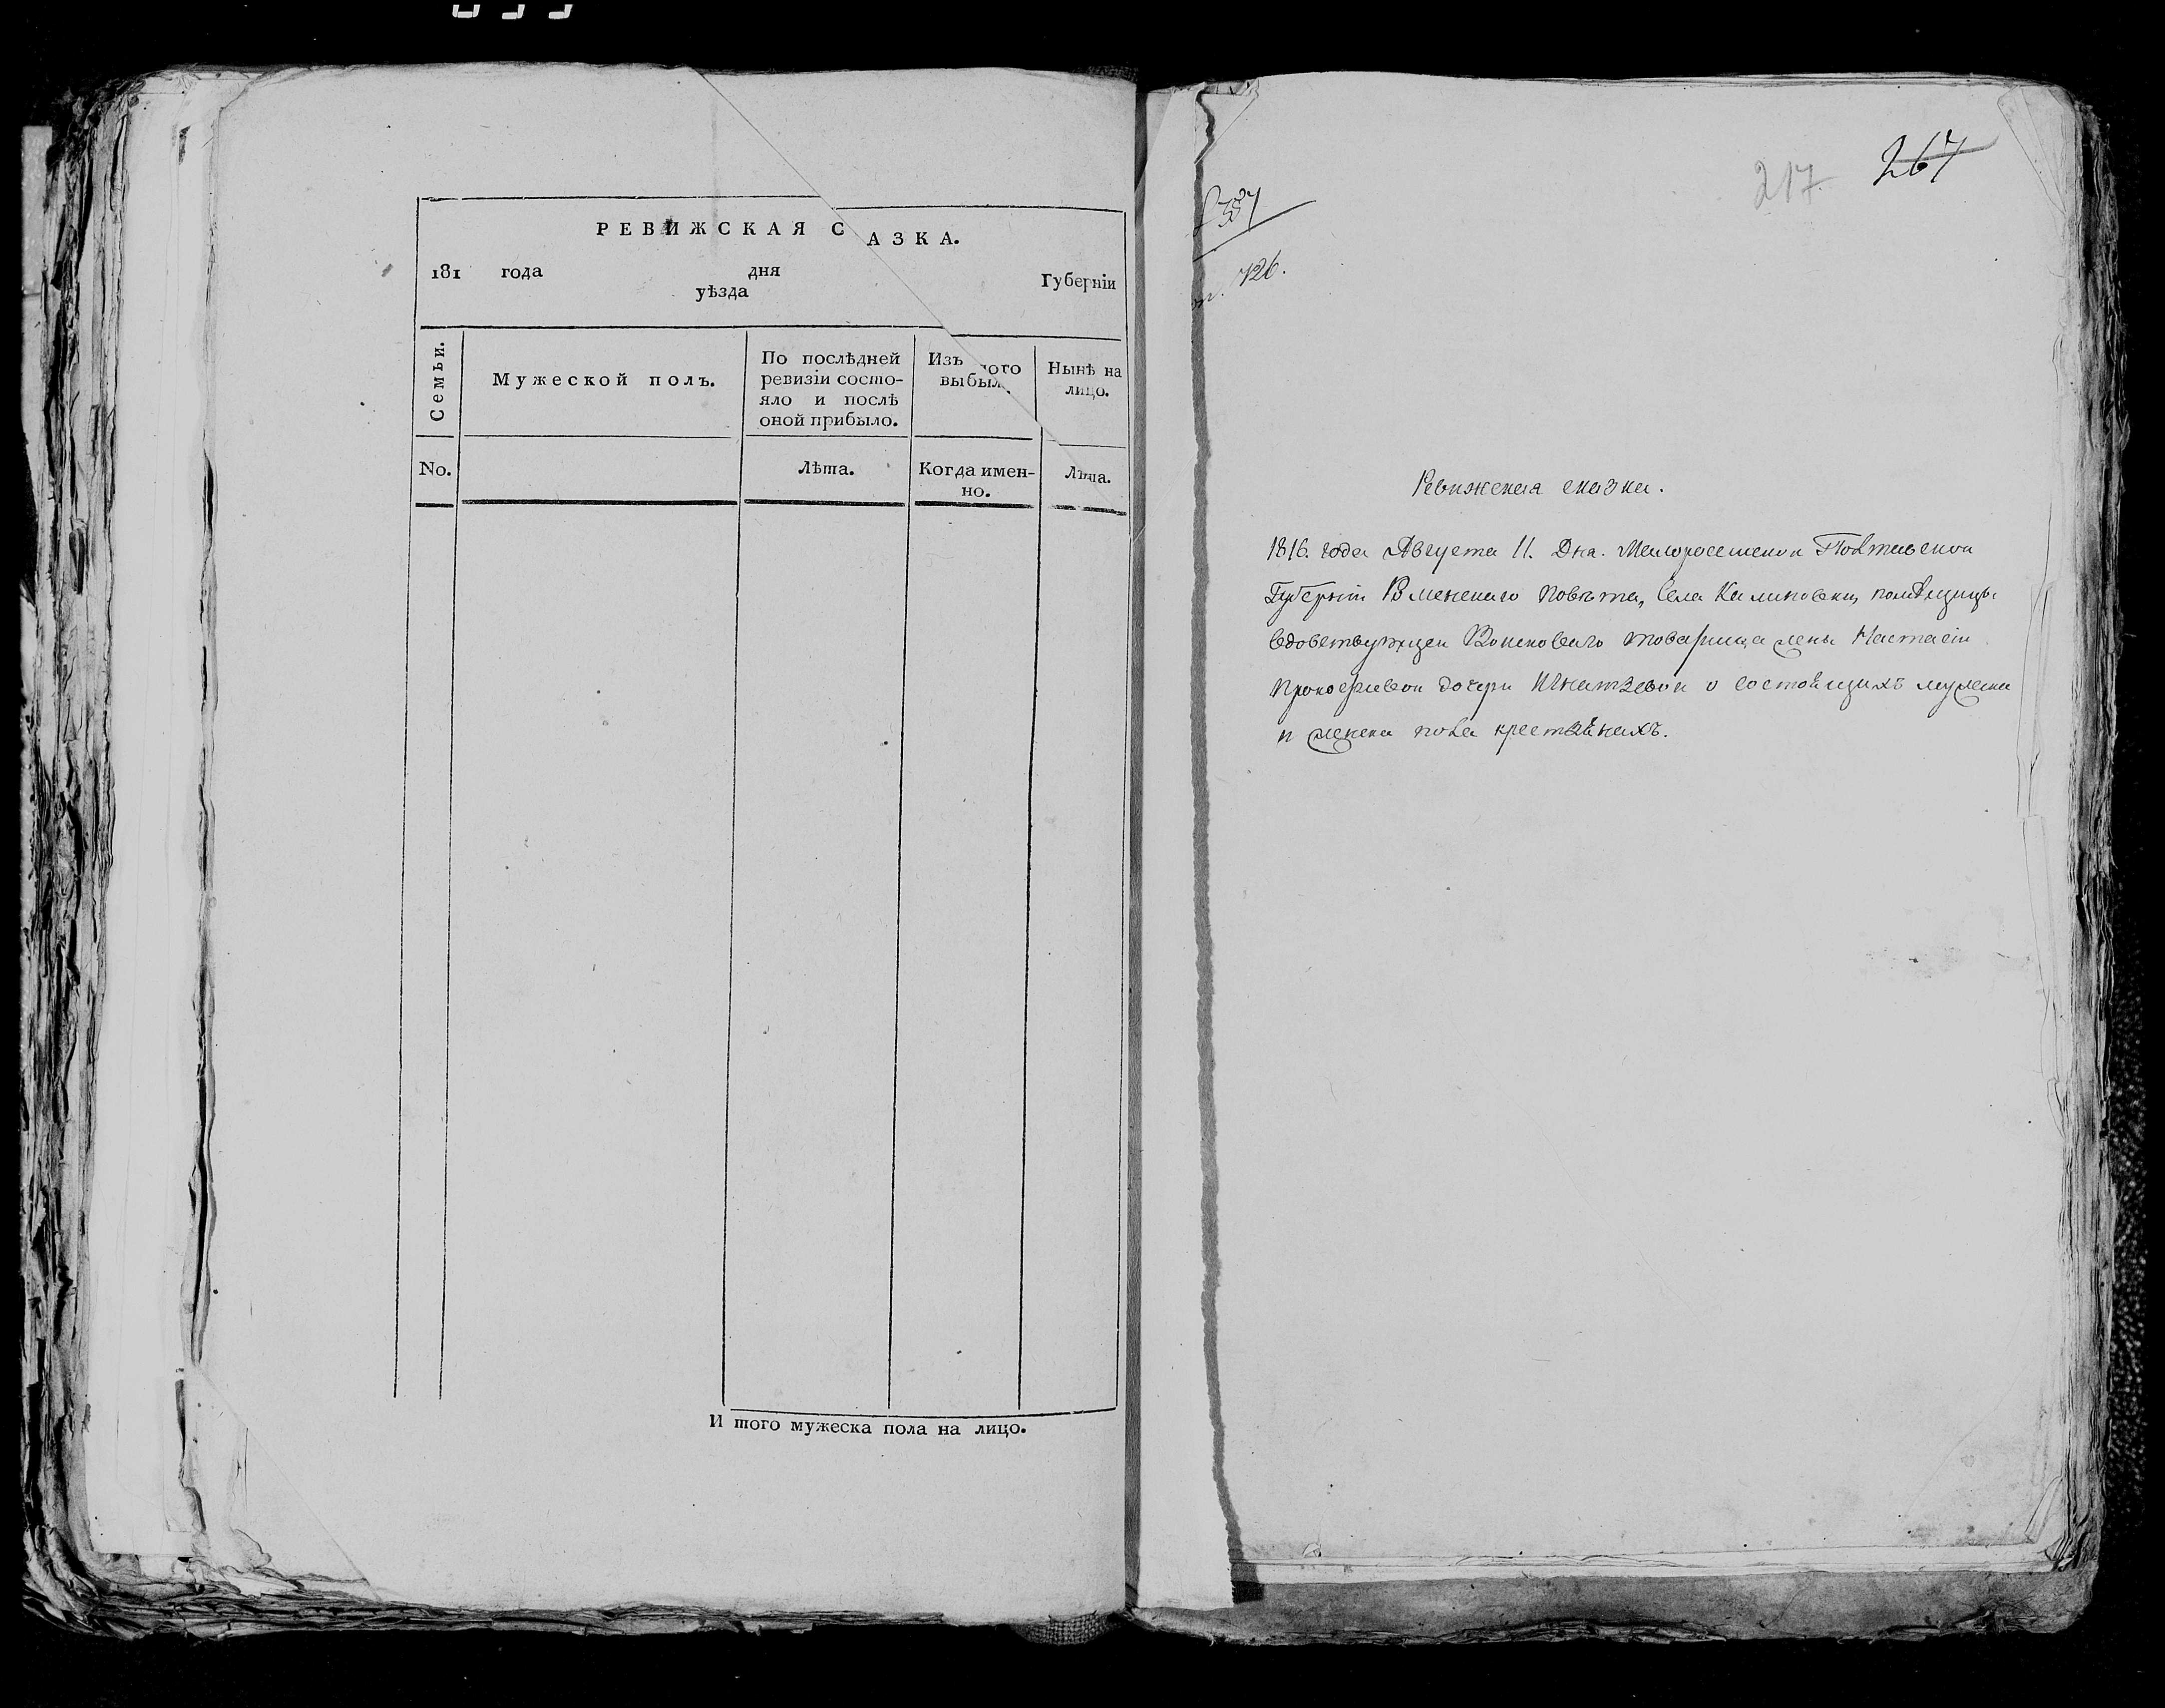 РЕВИЖСКАЯ С АЗКА.
181 года дня Губерніи
уѣзда
Семьи.
Мужеской полъ.
По послѣдней
ревизіи состо-
яло и послѣ
оной прибыло.
Изъ того
выбыл
Нынѣ на
лицо.
No.
Лѣта.
Когда имен-
но.
Лѣта.
И того мужеска пола на лицо.
217
267
726.
Ревижская сказка.
1816. года Августа 11. Дня. Малоросийской Полтавской
Губерніи Роменскаго повѣта, Села Калиновки, помѣщицы
вдовствующей Войсковаго товарища жены Настасіи
Прокофіевой дочери Игнатьевой о состоящихъ мужска
и женска пола крестьянахъ.